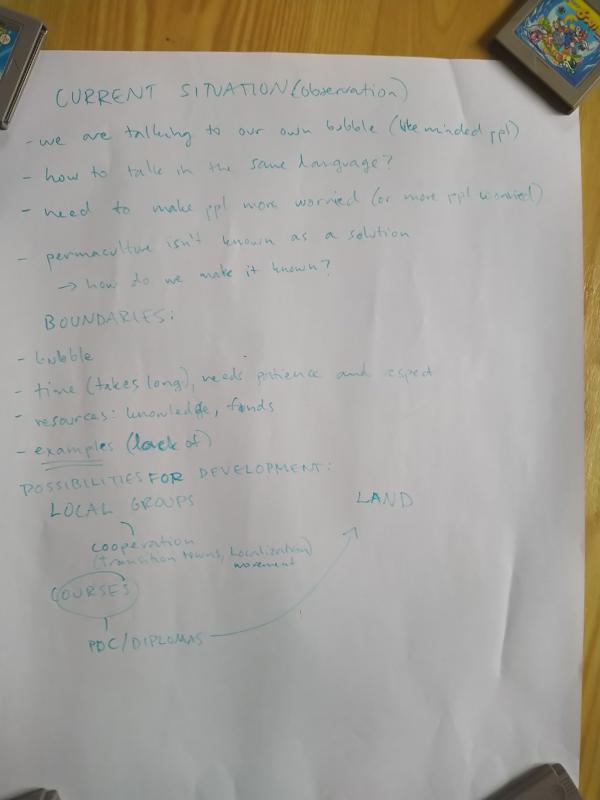 CURRENT SITUATION (observation)
- we are talking to our own bubble (like minded ppl)
- how to talk in the same language?
- need to make ppl more worried (or more ppl worried)
- permaculture isn't known as a solution
→ how do we make it known?
BOUNDARIES:
- bubble
- time (takes long), needs patience and respect
- resources: knowledge, funds
- examples (lack of)
POSSIBILITIES FOR DEVELOPMENT:
LOCAL GROUPS
LAND
cooperation
(transition towns, Localization
movement)
COURSES
PDC/DIPLOMAS